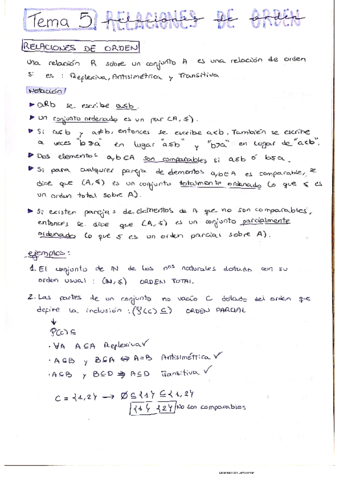 Tema 5: RELACIONES DE ORDEN
RELACIONES DE ORDEN
Una relación R sobre un conjunto A es una relación de orden
si es: Reflexiva, Antisimétrica y Transitiva
Notación:
▶ aRb se escribe a≤b.
▶ Un conjunto ordenado es un par (A, ≤).
▶ Si a≤b y a≠b, entonces se escribe a<b. También se escribe
a veces "b≥a" en lugar "a≤b" y "b>a" en lugar de "a<b".
▶ Dos elementos a,b∈A son comparables si a≤b ó b≤a.
▶ Si para cualquier pareja de elementos a,b∈A es comparable, se
dice que (A, ≤) es un conjunto totalmente ordenado (o que ≤ es
un orden total sobre A).
▶ Si existen parejas de elementos de A que no son comparables,
entonces se dice que (A, ≤) es un conjunto parcialmente
ordenado (o que ≤ es un orden parcial sobre A).
ejemplo:
1. El conjunto de ℕ de los nos naturales dotado con su
orden usual: (ℕ, ≤) ORDEN TOTAL
2. Las partes de un conjunto no vacío C dotado del orden que
define la inclusión: (P(C) ⊆) ORDEN PARCIAL
↓
P(C) ⊆
· ∀A A⊆A Reflexiva ✓
· A⊆B y B⊆A ⇔ A=B Antisimétrica ✓
· A⊆B y B⊆D ⇒ A⊆D Transitiva ✓
C = {1,2} → ∅⊆{1}⊆{1,2}
{1} {2} No son comparables